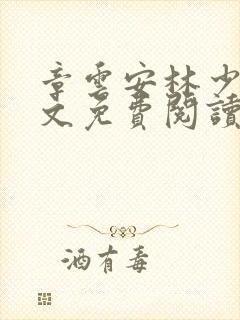 章雲安林少
文免費閱讀
酒有毒